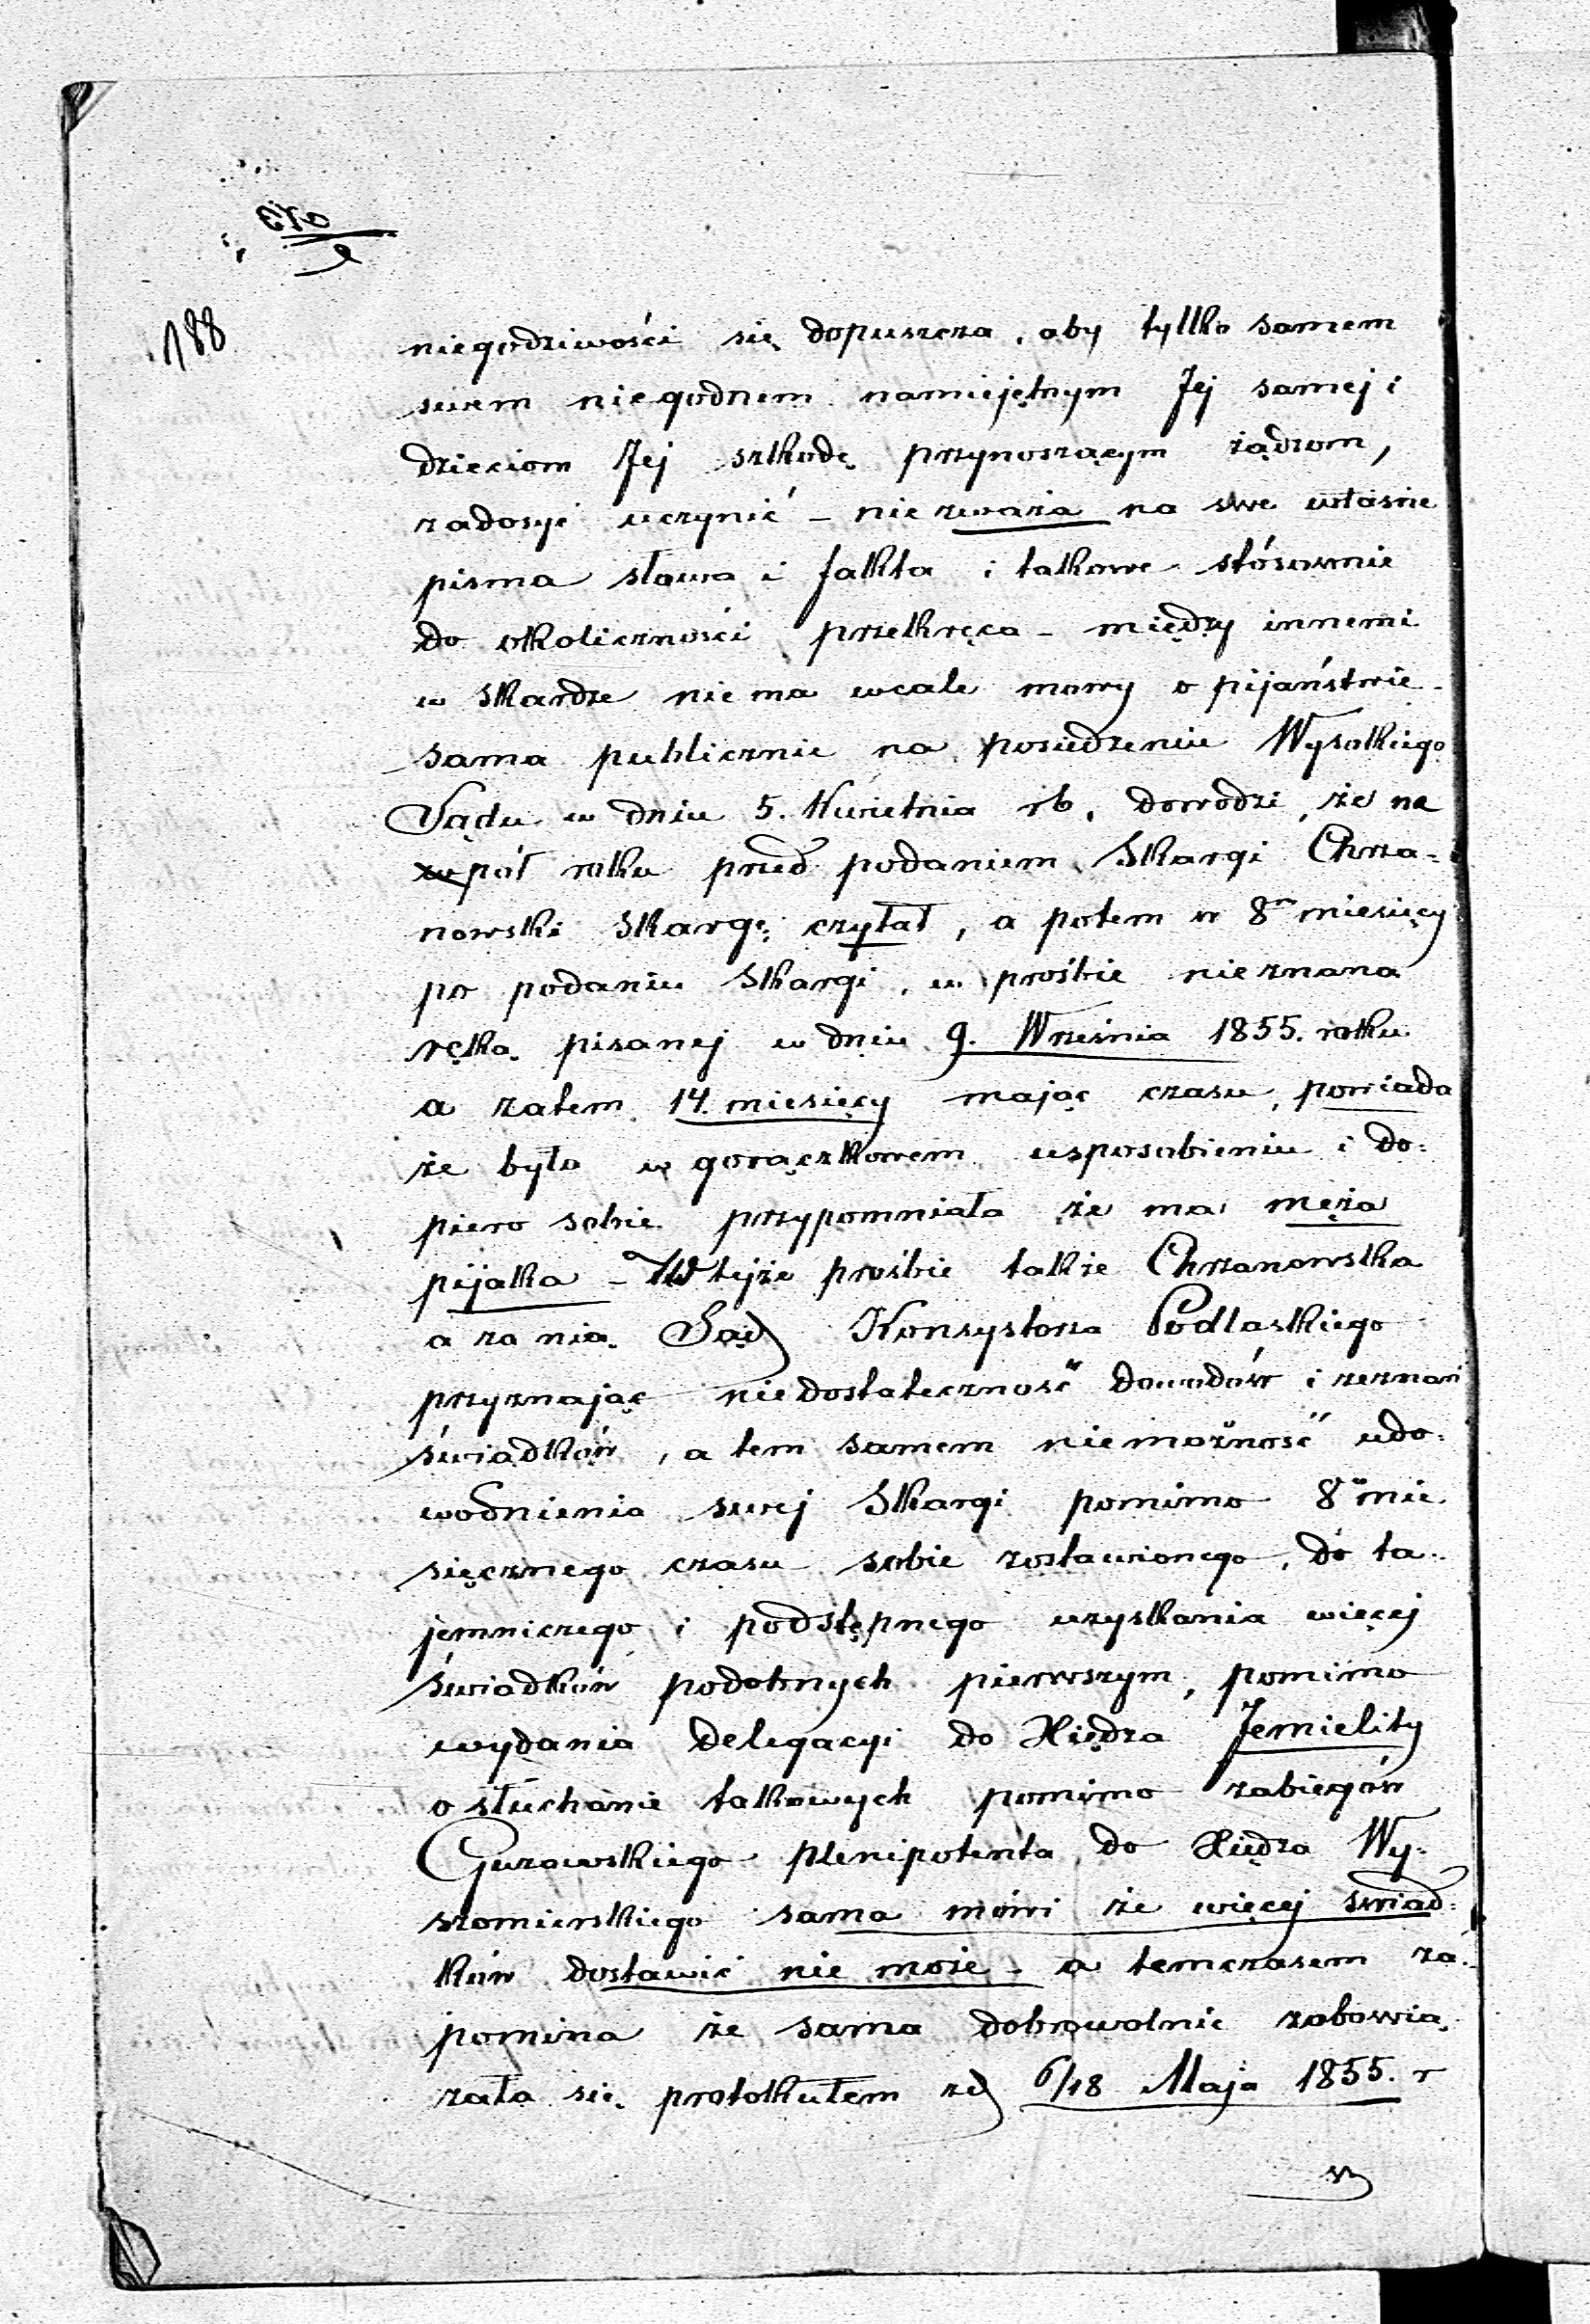 188
niegodziwości się dopuszcza, aby tylko samem
swem niegodnem namiejętnym Jej samej i
dzieciom Jej szkodę przynoszącym rządzom,
zadosyć uczynić – nie zważa na swe własne
pisma słowa i fakta i takowe stósownie
do okoliczności przekręca – między innemi
w Skardze nie ma wcale mowy o pijaństwie –
sama publicznie na posiedzeniu Wysokiego
Sądu w dniu 5. Kwietnia rb. dowodzi, że na
pół roku przed podaniem Skargi Chrza=
nowski Skargę czytał, a potem w 8m miesięcy
po podaniu Skargi, w prośbie nieznaną
ręką pisanej w dniu 9. Września 1855. roku
a zatem 14. miesięcy mając czasu, powiada
że była w gorączkowem usposobieniu i do=
piero sobie przypomniała że ma męża
pijaka – W tejże prośbie także Chrzanowska
a za nią Sąd Konsystorza Podlaskiego
przyznając niedostateczność dowodów i zeznań
świadków, a tem samem niemożność udo=
wodnienia swej Skargi pomimo 8mie
sięcznego czasu sobie zostawionego, do ta=
jemniczego i podstępnego uzyskania więcej
świadków podobnych pierwszym, pomimo
wydania delegacyi do Xiędza Jemielity
o słuchanie takowych pomimo zabiegów
Gurowskiego plenipotenta do Xiędza Wy=
szomierskiego sama mówi że więcej świad=
ków dostawić nie może – a temczasem za=
pomina że sama dobrowolnie zobowią
zała się protokułem zd 6/18 Maja 1855. r